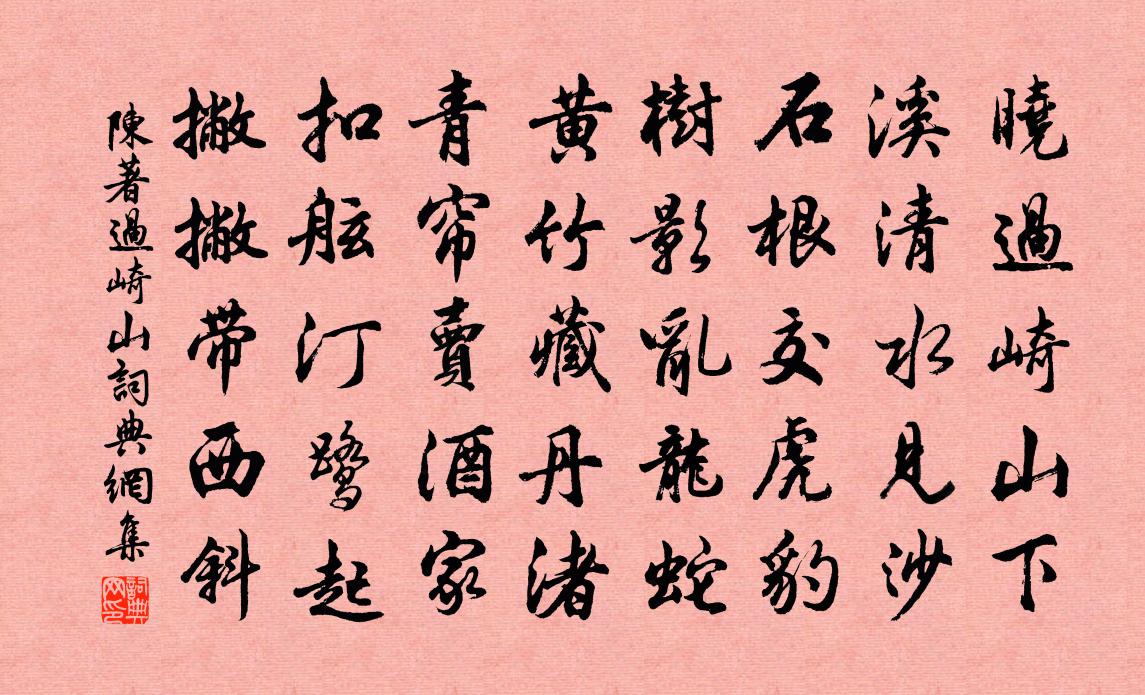 曉過崎山下
溪清水見沙
石根交虎豹
樹影亂龍蛇
黃竹藏丹渚
青帘賣酒家
扣舷汀鷺起
撇撇帶西斜
陳著過崎山詞典網集
詞典网印